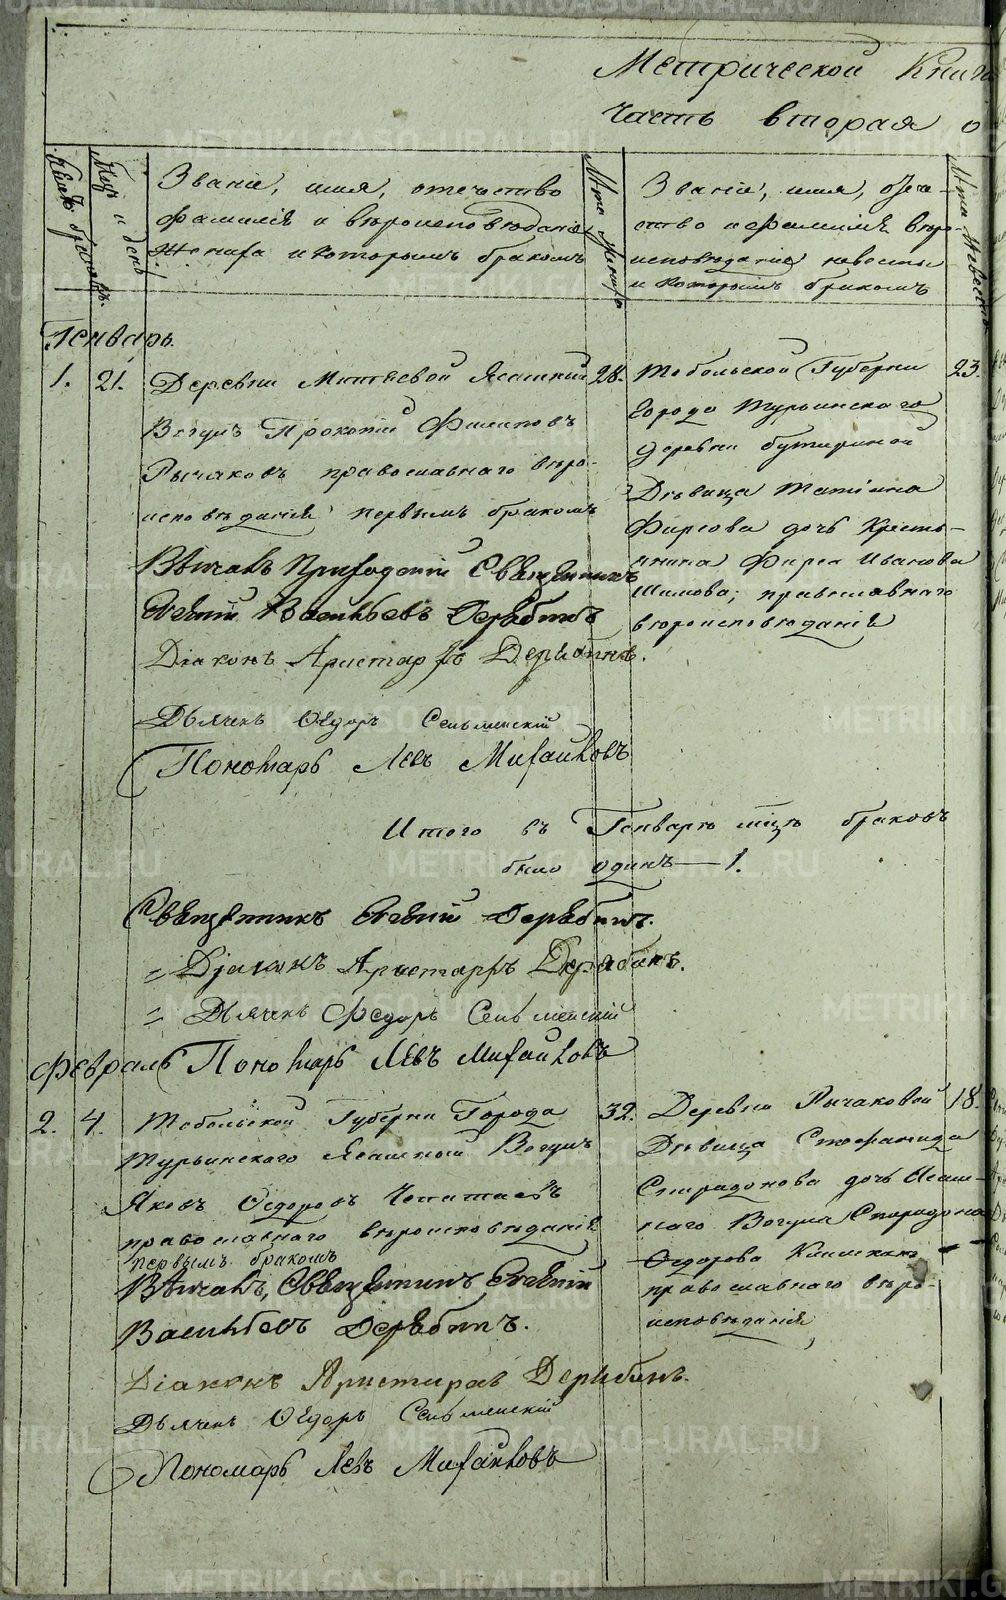 Метрической Книги
Часть вторая о
Счетъ браковъ.
Мцъ и день
Званіе, имя, отечество
фамилія и вѣроисповѣданіе
Жениха и которымъ бракомъ
Лѣта Жениха
Званіе, имя, отече-
ство и фамилія вѣро-
исповѣданіе невесты
и которымъ бракомъ
Лѣта Невесты
Генварь.
1. 21. Деревни Митяевой Ясашный 28.
Вогулъ Прокопій Филиповъ
Рычковъ православнаго вѣро-
исповѣданія первымъ бракомъ
Вѣнчалъ Приходскій Священникъ
Евгеній Васильевъ Дерябинъ
Діаконъ Аристархъ Дерябинъ.
Дьячекъ Ѳедоръ Сельменскій
Пономарь Левъ Михайловъ
Тобольской Губерни 23.
Города Турьинскаго
деревни бутыриной
Дѣвица Татіана
Фирсова дочь Кресть-
янина Фирса Иванова
Шимова; православнаго
вѣроисповѣданія
Итого въ Генварѣ мцѣ браковъ
было одинъ—1.
Священникъ Евгеній Дерябинъ.
= Діаконъ Аристархъ Дерябинъ.
= Дьячекъ Федоръ Сельменскій
Февраль Пономарь Левъ Михайловъ
2. 4. Тобольской Губерни Города 32.
Турьинскаго Ясашный Вогулъ
Яковъ Ѳедоровъ
православнаго вѣроисповѣданія
первымъ бракомъ
Вѣнчалъ, Священникъ Евгеній
Васильевъ Дерябинъ.
Діаконъ Аристархъ Дерябинъ.
Дьячекъ Ѳедоръ Сельменскій
Пономарь Левъ Михайловъ
Деревни Рычковой 18.
Дѣвица Стефанида
Спиридонова дочь Ясаш-
наго Вогула Спиридона
Ѳедорова
православнаго вѣро-
исповѣданія
METRIKI.GASO-URAL.RU